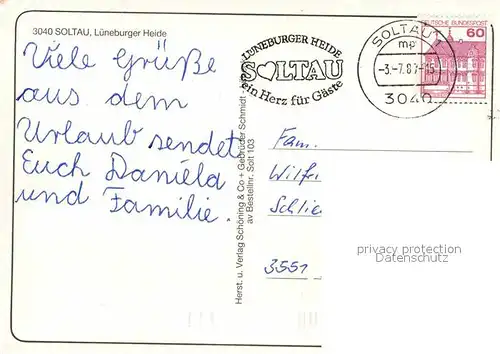 3040 SOLTAU, Lüneburger Heide
Viele Grüße
aus dem
Urlaub sendet
Euch Daniela
und Familie.
Herst. u. Verlag Schöning & Co + Gebrüder Schmidt
av Bestellnr. Solt 103
LÜNEBURGER HEIDE
SOLTAU
ein Herz für Gäste
SOLTAU 1
mp
3040
DEUTSCHE BUNDESPOST
60
Fam.
3551
privacy protection
Datenschutz